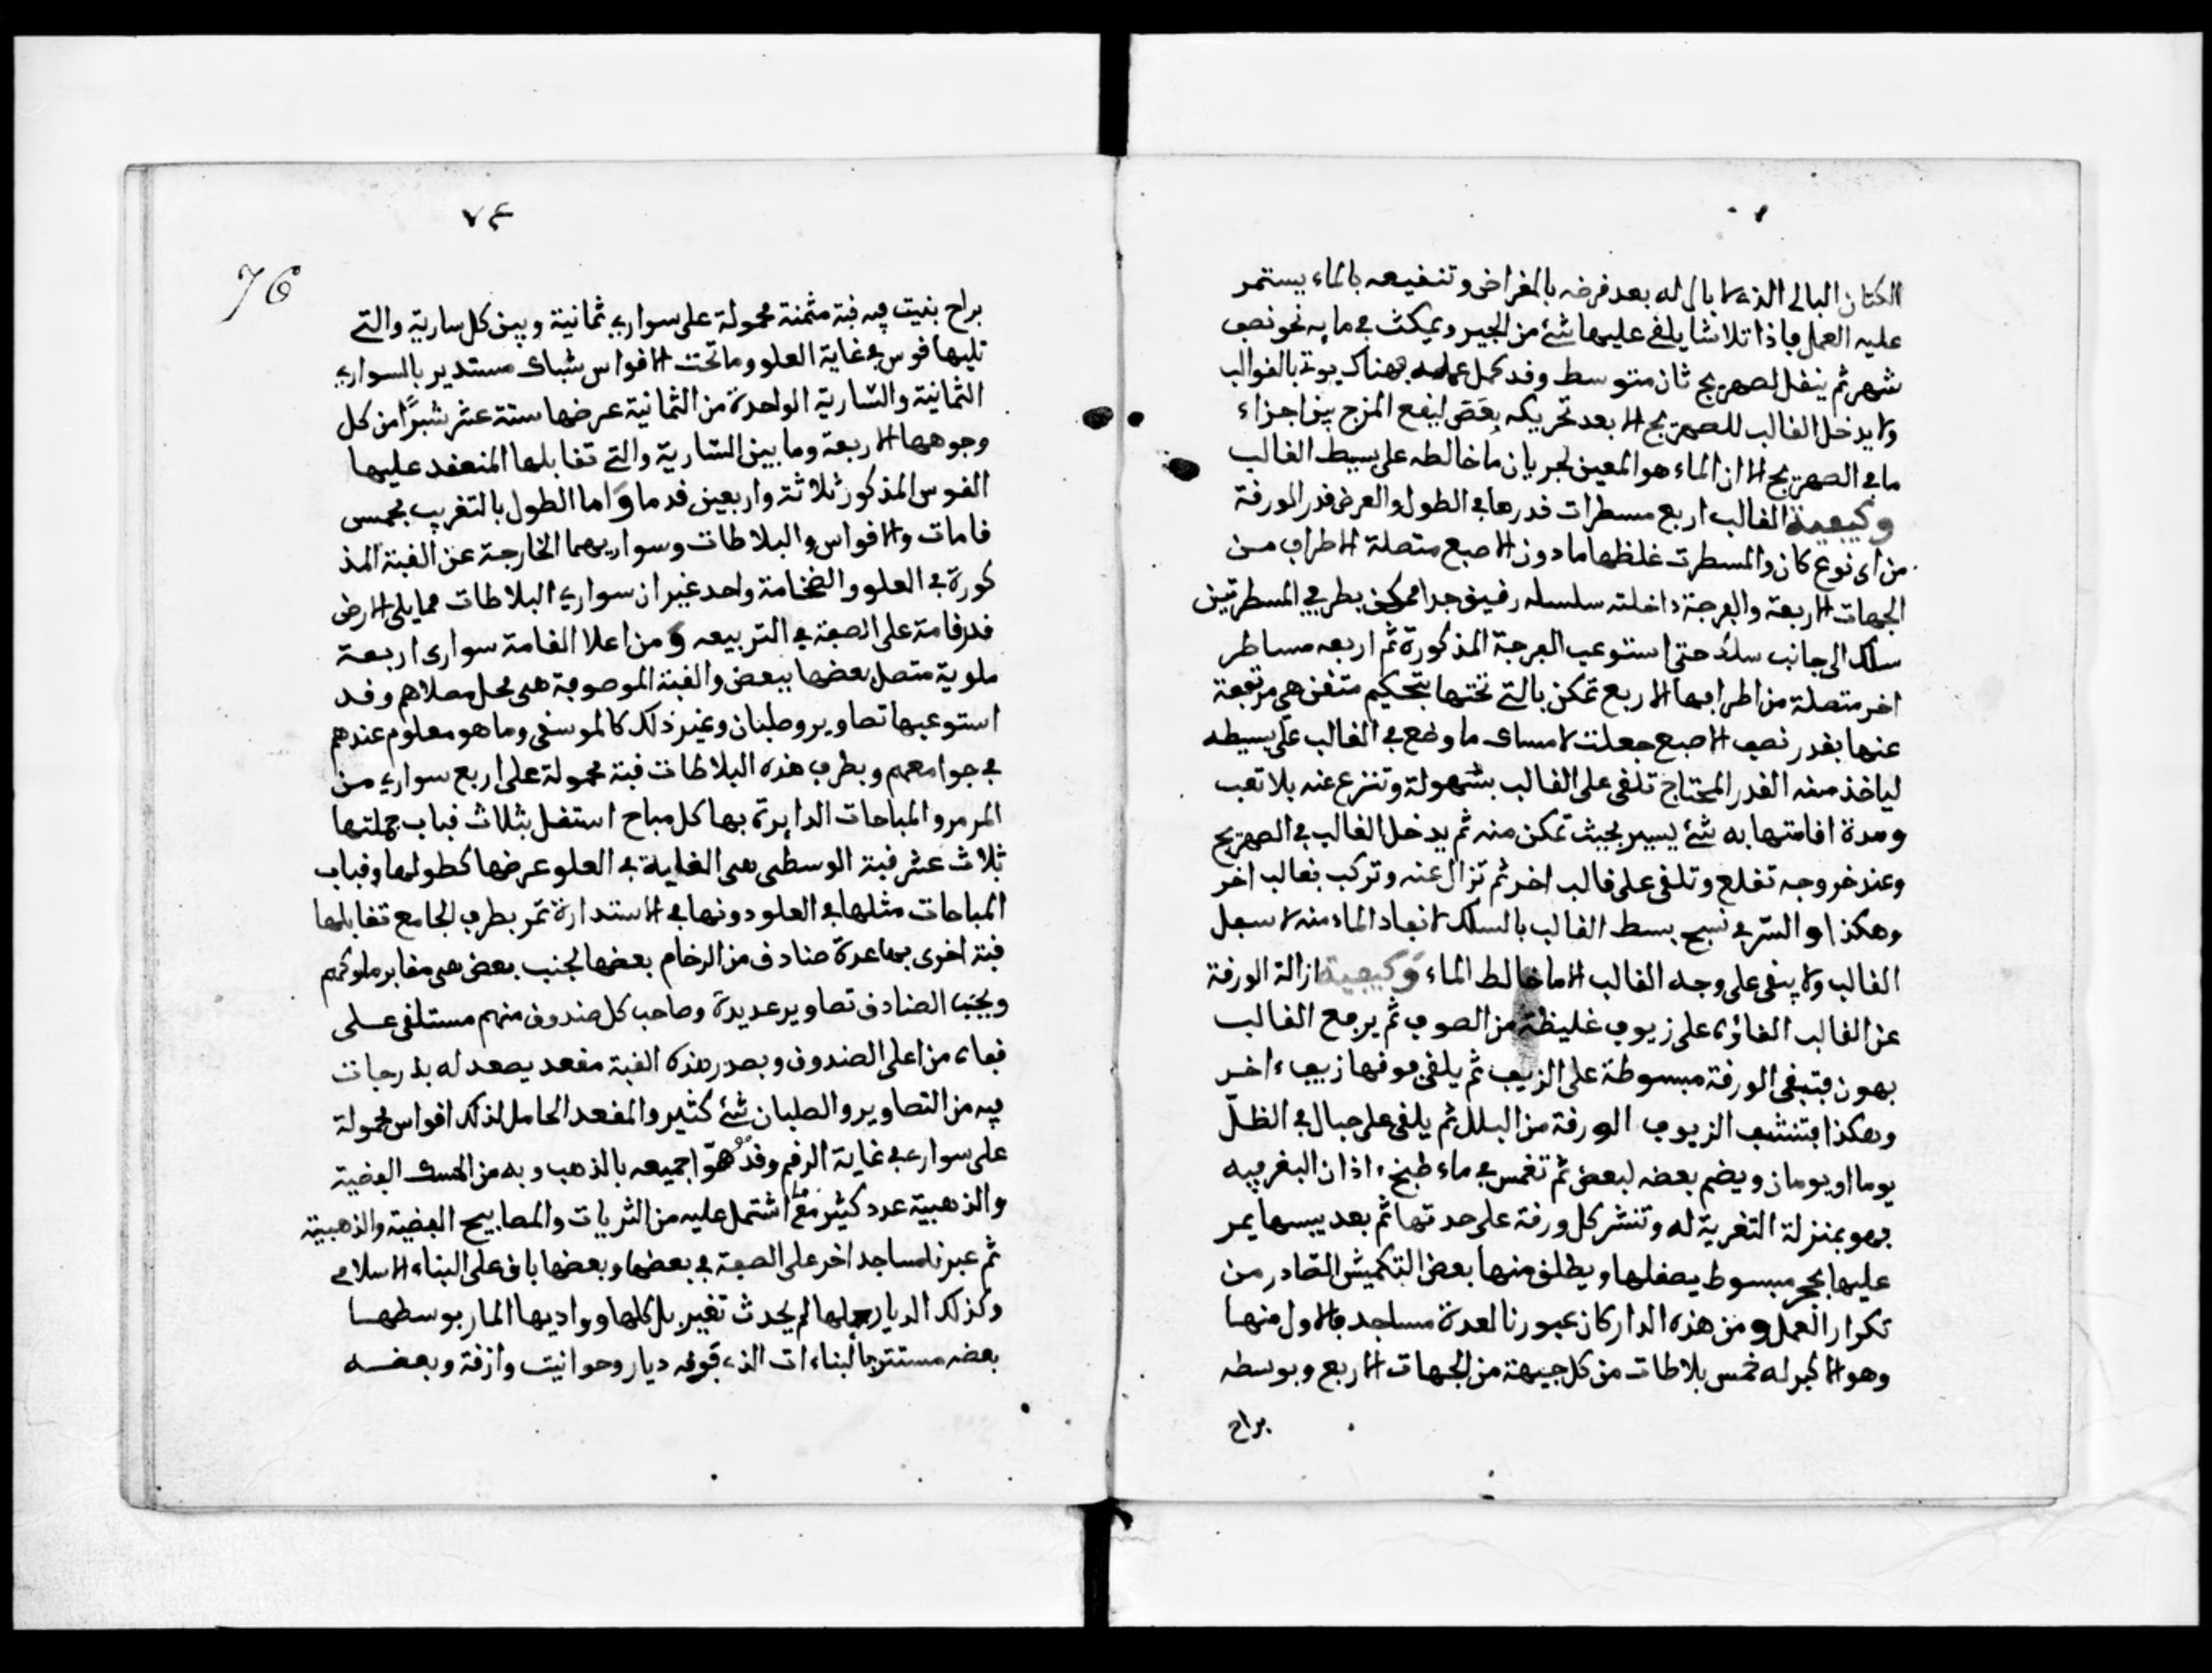 الكتان البالي الذي لا بال له بعد قرضه بالمقراض وتنقيعه بالماء يستمر
عليه العمل فاذا تلاشا يلقى عليها شئ من الجير ويمكث في مايه نحو نصف
شهر ثم ينقل لصهريج ثان متوسط وقد كمل عمله فهناك يوتى بالقوالب
ولا يدخل القالب للصهريج الا بعد تحريكه بعصى ليقع المزج بين اجزاء
ما في الصهريج الا ان الماء هو المعين لجريان ما خالطه على بسيط القالب
وكيفية القالب اربع مسطرات قدرها في الطول والعرض قدر الورقة
من اى نوع كان والمسطرت غلظها ما دون الاصبع متصلة الاطراف من
الجهات الاربعة والفرجة داخلته سلسله رقيق جدا ممكن بطرفي المسطرتين
سلك الى جانب سلك حتى استوعب الفرجة المذكورة ثم اربعه مساطر
اخر متصلة من اطرافها الاربع تمكن بالتي تحتها بتحكيم متقن هي مرتفعة
عنها بقدر نصف الاصبع جعلت لامساك ما وضع في القالب على بسيطه
لياخذ منه القدر المحتاج تلقى على القالب بسهولة وتنزع عنه بلا تعب
ومدة اقامتها به شئ يسير بحيث تمكن منه ثم يدخل القالب في الصهريج
وعند خروجه تقلع وتلقى على قالب اخر ثم تزال عنه وتركب بقالب اخر
وهكذا والسر في نسج بسط القالب بالسلك لانفاد الماء منه لاسفل
القالب ولا يبقى على وجه القالب الا ما خالط الماء وكيفية ازالة الورقة
عن القالب القاؤه على زيوف غليظة من الصوف ثم يرفع القالب
بهون فتبقى الورقة مبسوطة على الزيف ثم يلقى فوقها زيف ءاخر
وهكذا فتنشف الزيوف الورقة من البلل ثم يلقى على حبال في الظل
يوما او يومان ويضم بعضه لبعض ثم تغمس في ماء طبخ ءاذان البقر فيه
فهو بمنزلة التغرية له وتنشر كل ورقة على حدتها ثم بعد يبسها يمر
عليها بحجر مبسوط يصقلها ويطلق منها بعض التكميش الصادر من
تكرار العمل ومن هذه الدار كان عبورنا لعدة مساجد فالاول منها
وهو الاكبر له خمس بلاطات من كل جيهة من الجهات الاربع وبوسطه
براح
٧٤
76
براح بنيت فيه قبة مثمنة محمولة على سواري ثمانية وبين كل سارية والتي
تليها قوس في غاية العلو وما تحت الاقواس شباك مستدير بالسواري
الثمانية والسارية الواحدة من الثمانية عرضها ستة عشر شبرا من كل
وجوهها الاربعة وما بين السارية والتي تقابلها المنعقد عليها
القوس المذكور ثلاثة واربعين قدما واما الطول بالتقريب بخمس
قامات والاقواس والبلاطات وسواريهما الخارجة عن القبة المذ
كورة في العلو والضخامة واحد غير ان سواري البلاطات مما يلي الارض
قدر قامة على الصفة في التربيعه ومن اعلا القامة سوارى اربعة
ملوية متصل بعضها ببعض والقبة الموصوفة هى محل مصلاهم وقد
استوعبها تصاوير وصلبان وغير ذلك كالموسقى وما هو معلوم عندهم
في جوامعهم وبطرف هذه البلاطات قبة محمولة على اربع سواري من
المرمر والمباحات الدايرة بها كل مباح استقل بثلاث قباب جملتها
ثلاث عشر قبة الوسطى هى الغاية في العلو عرضها كطولها وقباب
المباحات مثلها في العلو دونها في الاستدارة تمر بطرف الجامع تقابلها
قبة اخرى بها عدة صنادق من الرخام بعضها لجنب بعض هى مقابر ملوكهم
وبجنب الصنادق تصاوير عديدة وصاحب كل صندوق منهم مستلقى على
قفاه من اعلى الصندوق وبصدر هذه القبة مقعد يصعد له بدرجات
فيه من التصاوير والصلبان شئ كثير والمقعد الحامل لذلك اقواس محمولة
على سوارى في غاية الرقم وقد موهوا جميعه بالذهب وبه من الحسك الفضية
والذهبية عدد كثير مع ما اشتمل عليه من الثريات والمصابيح الفضية والذهبية
ثم عبرنا لمساجد اخر على الصفة في بعضها وبعضها باق على البناء الاسلامي
وكذلك الديار جلها لم يحدث تغيير بل كلها وواديها المار بوسطها
بعضه مستتر بالبناءات الذى فوقه ديار وحوانيت وازقة وبعضه